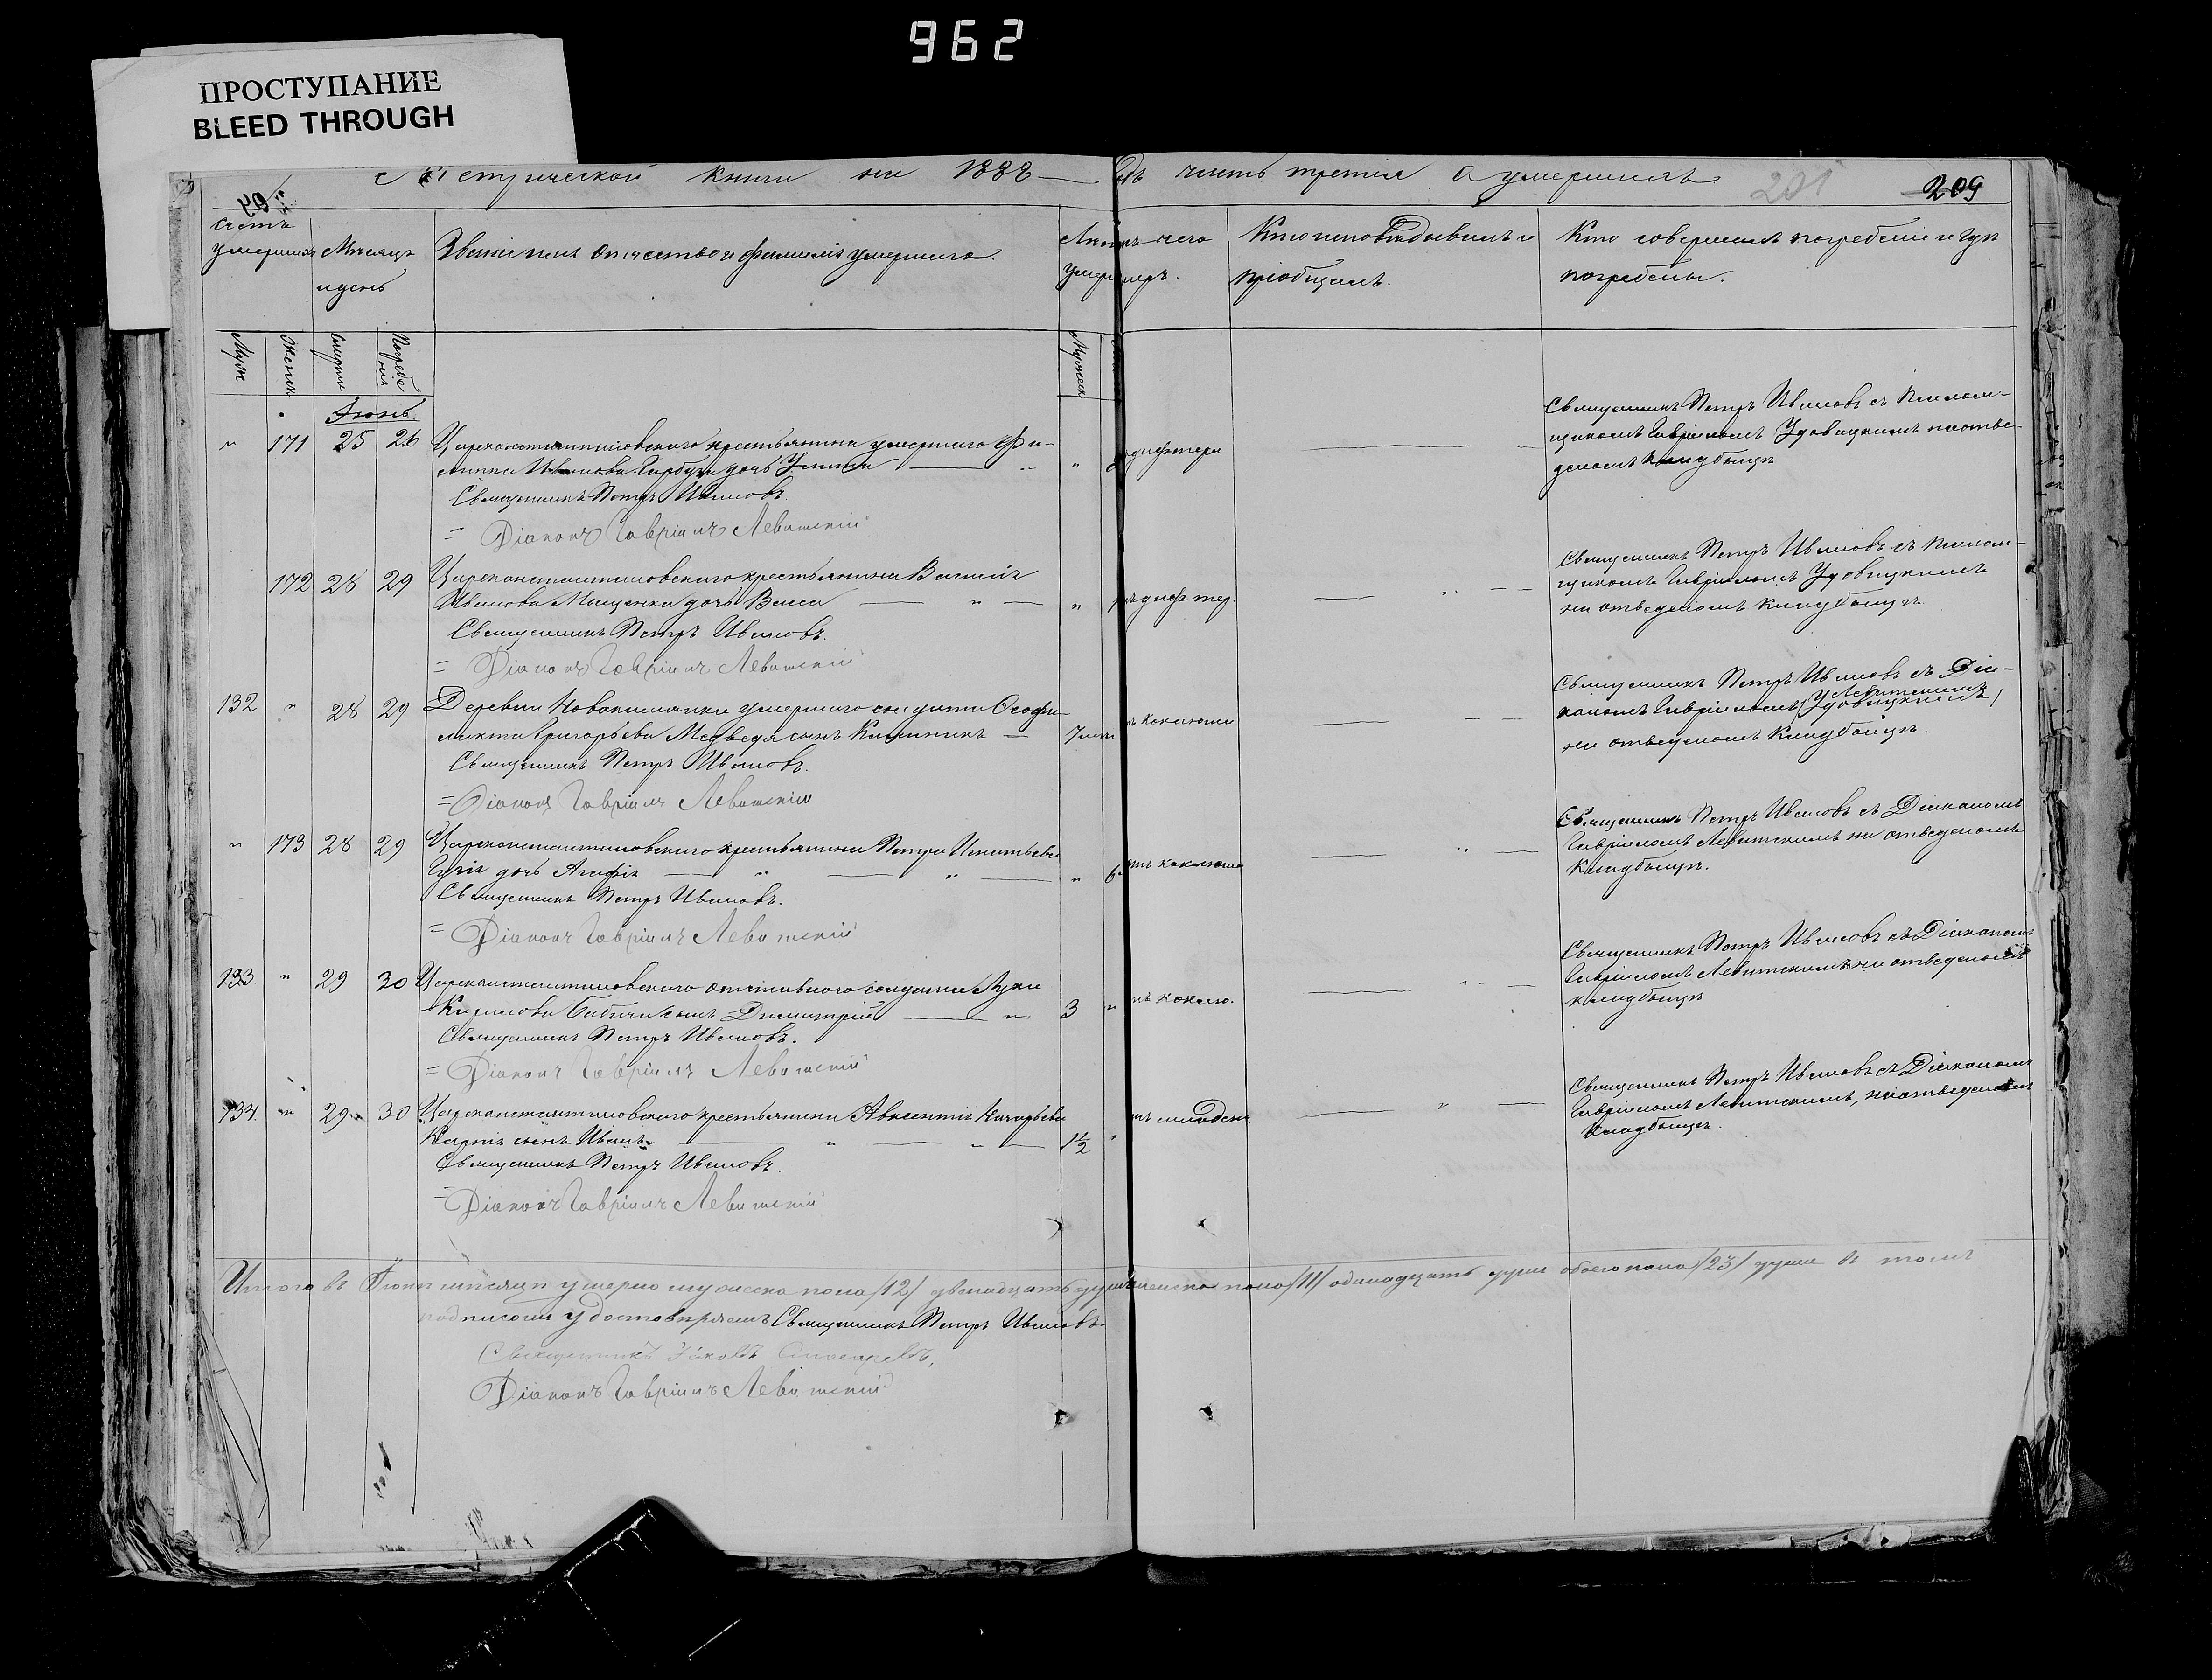 962
ПРОСТУПАНИЕ
BLEED THROUGH
Метрической книги на 1888 Годъ часть третія О умершихъ
201 209
Счетъ умершихъ
Мѣсяцъ и день
Званіе имя отчество и фамилія умершаго.
Кто исповѣдывалъ и пріобщалъ.
Кто совершалъ погребеніе и гдѣ погребены.
Муж
Женск
Смерти
Погребенія
Мужеск
Іюнь
" 171 25 26 Цареконстантиновскаго крестьянина умершаго Фи-
липпа Иванова Гарбуза дочь
дифтери
Священникъ Петръ Ивановъ съ Псалом-
щикомъ Гавріиломъ Удовицкимъ на отве-
деномъ кладбищѣ
Священникъ Петръ Ивановъ.
= Діаконъ Гавріилъ Левитскій
172 28 29 Цареконстантиновскаго крестьянина Василія
Иванова Мищенка дочь Васса — " — "
дифтер.
Священникъ Петръ Ивановъ съ Псалом-
щикомъ Гавріиломъ Удовицкимъ
на отведеномъ кладбищѣ.
Священникъ Петръ Ивановъ.
= Діаконъ Гавріилъ Левитскій
132 " 28 29 Деревни умершаго солдата Феофи-
лакта Григорьева Медведя сынъ Калиникъ — 7
коклюша
Священникъ Петръ Ивановъ съ Діа-
кономъ Гавріиломъ (Удовицкимъ) Левитскимъ
на отведеномъ кладбищѣ.
Священникъ Петръ Ивановъ.
= Діаконъ Гавріилъ Левитскій
" 173 28 29 Цареконстантиновскаго крестьянина Петра Игнатьева
дочь Агафія — " — " — " 6
коклюша
Священникъ Петръ Ивановъ съ Діакономъ
Гавріиломъ Левитскимъ на отведеномъ
Кладбищѣ.
Священникъ Петръ Ивановъ.
= Діаконъ Гавріилъ Левитскій
133. " 29 30 Цареконстантиновскаго отставнаго солдата Луки
сынъ Димитрій — " 3 "
коклю.
Священникъ Петръ Ивановъ съ Діакономъ
Гавріиломъ Левитскимъ на отведеномъ
кладбищѣ
Священникъ Петръ Ивановъ.
= Діаконъ Гавріилъ Левитскій
134. " 29 30 Цареконстантиновскаго крестьянина Авксентія
сынъ Иванъ — " — " — 1½ "
Священникъ Петръ Ивановъ съ Діакономъ
Гавріиломъ Левитскимъ, на отведеномъ
кладбищѣ.
Священникъ Петръ Ивановъ.
= Діаконъ Гавріилъ Левитскій
Итого въ Іюнѣ мѣсяцѣ умерло мужеска пола /12/ двенадцать душъ женска пола /11/ одинадцать душъ обоего пола /23/ души въ томъ
подписомъ удостовѣряемъ Священникъ Петръ Ивановъ
Священникъ Іаковъ
Діаконъ Гавріилъ Левитскій